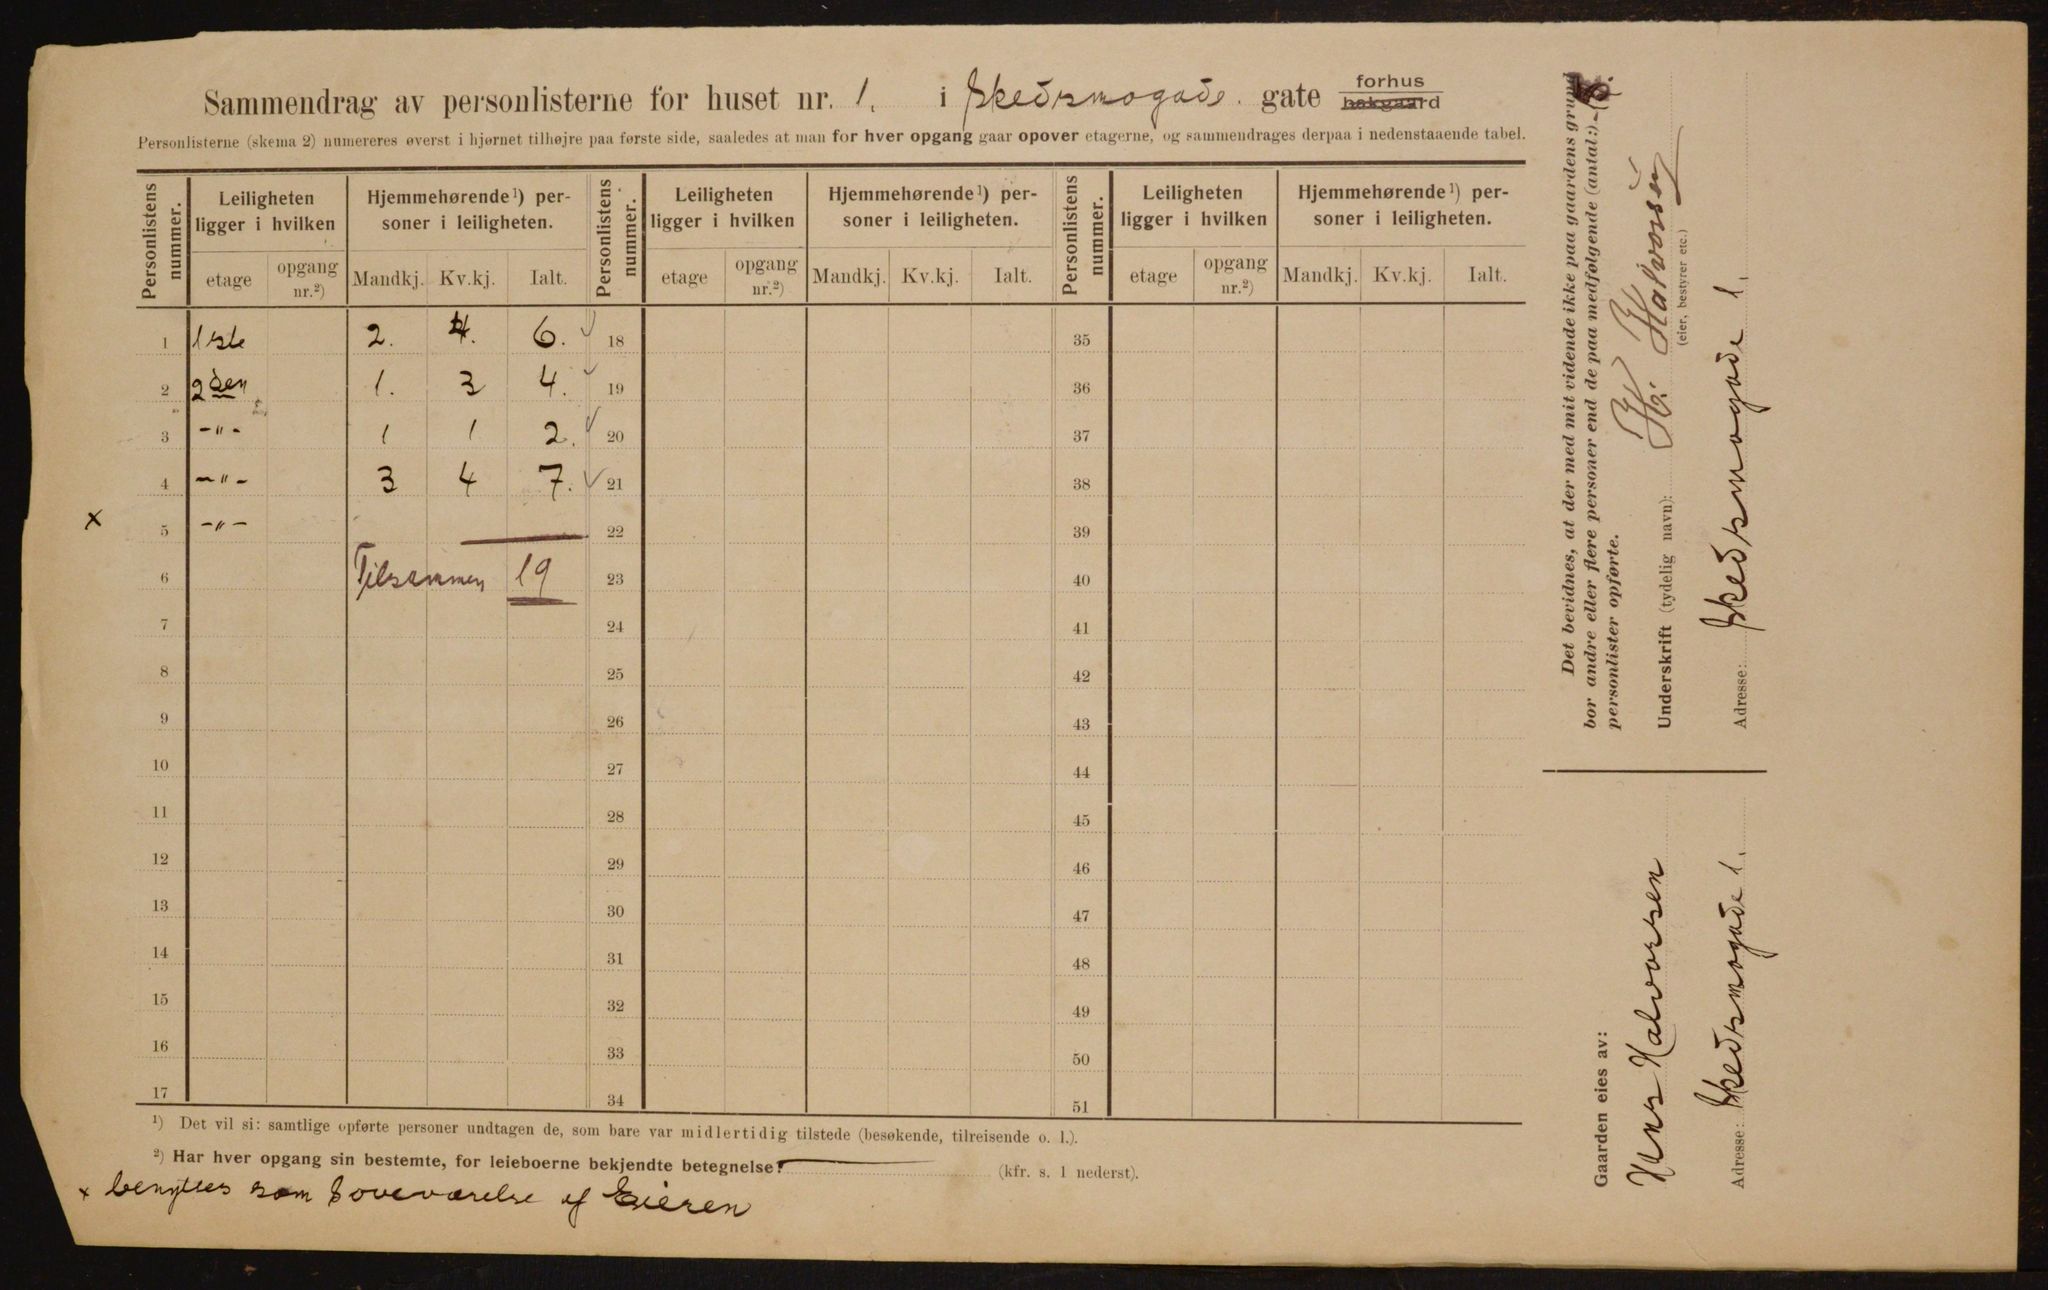 Sammendrag av personlisterne for huset nr. 1. i Skedsmogade. gate forhus bakgaard
Personlisterne (skema 2) numereres øverst i hjørnet tilhøjre paa første side, saaledes at man for hver opgang gaar opover etagerne, og sammendrages derpaa i nedenstaaende tabel.
Personlistens nummer. Leiligheten ligger i hvilken Hjemmehørende ¹) personer i leiligheten. Personlistens nummer. Leiligheten ligger i hvilken Hjemmehørende ¹) personer i leiligheten. Personlistens nummer. Leiligheten ligger i hvilken Hjemmehørende ¹) personer i leiligheten.
etage opgang nr.²) Mandkj. Kv.kj. Ialt. etage opgang nr.²) Mandkj. Kv.kj. Ialt. etage opgang nr.²) Mandkj. Kv.kj. Ialt.
1 1ste 2. 4. 6. ✓ 18 35
2 2den 1. 3 4. ✓ 19 36
3 -"- 1 1 2. ✓ 20 37
4 -"- 3 4 7. ✓ 21 38
x 5 -"- 22 39
6 Tilsammen 19 23 40
7 24 41
8 25 42
9 26 43
10 27 44
11 28 45
12 29 46
13 30 47
14 31 48
15 32 49
16 33 50
17 34 51
¹) Det vil si: samtlige opførte personer undtagen de, som bare var midlertidig tilstede (besøkende, tilreisende o. l.).
²) Har hver opgang sin bestemte, for leieboerne bekjendte betegnelse? (kfr. s. 1 nederst).
x benyttes som Soveværelse af Eieren
Det bevidnes, at der med mit vidende ikke paa gaardens grund
bor andre eller flere personer end de paa medfølgende (antal:)
personlister opførte.
Underskrift (tydelig navn): H. Halvorsen
(eier, bestyrer etc.)
Adresse: Skedsmogade 1.
Gaarden eies av:
Hans Halvorsen
Adresse: Skedsmogade 1.